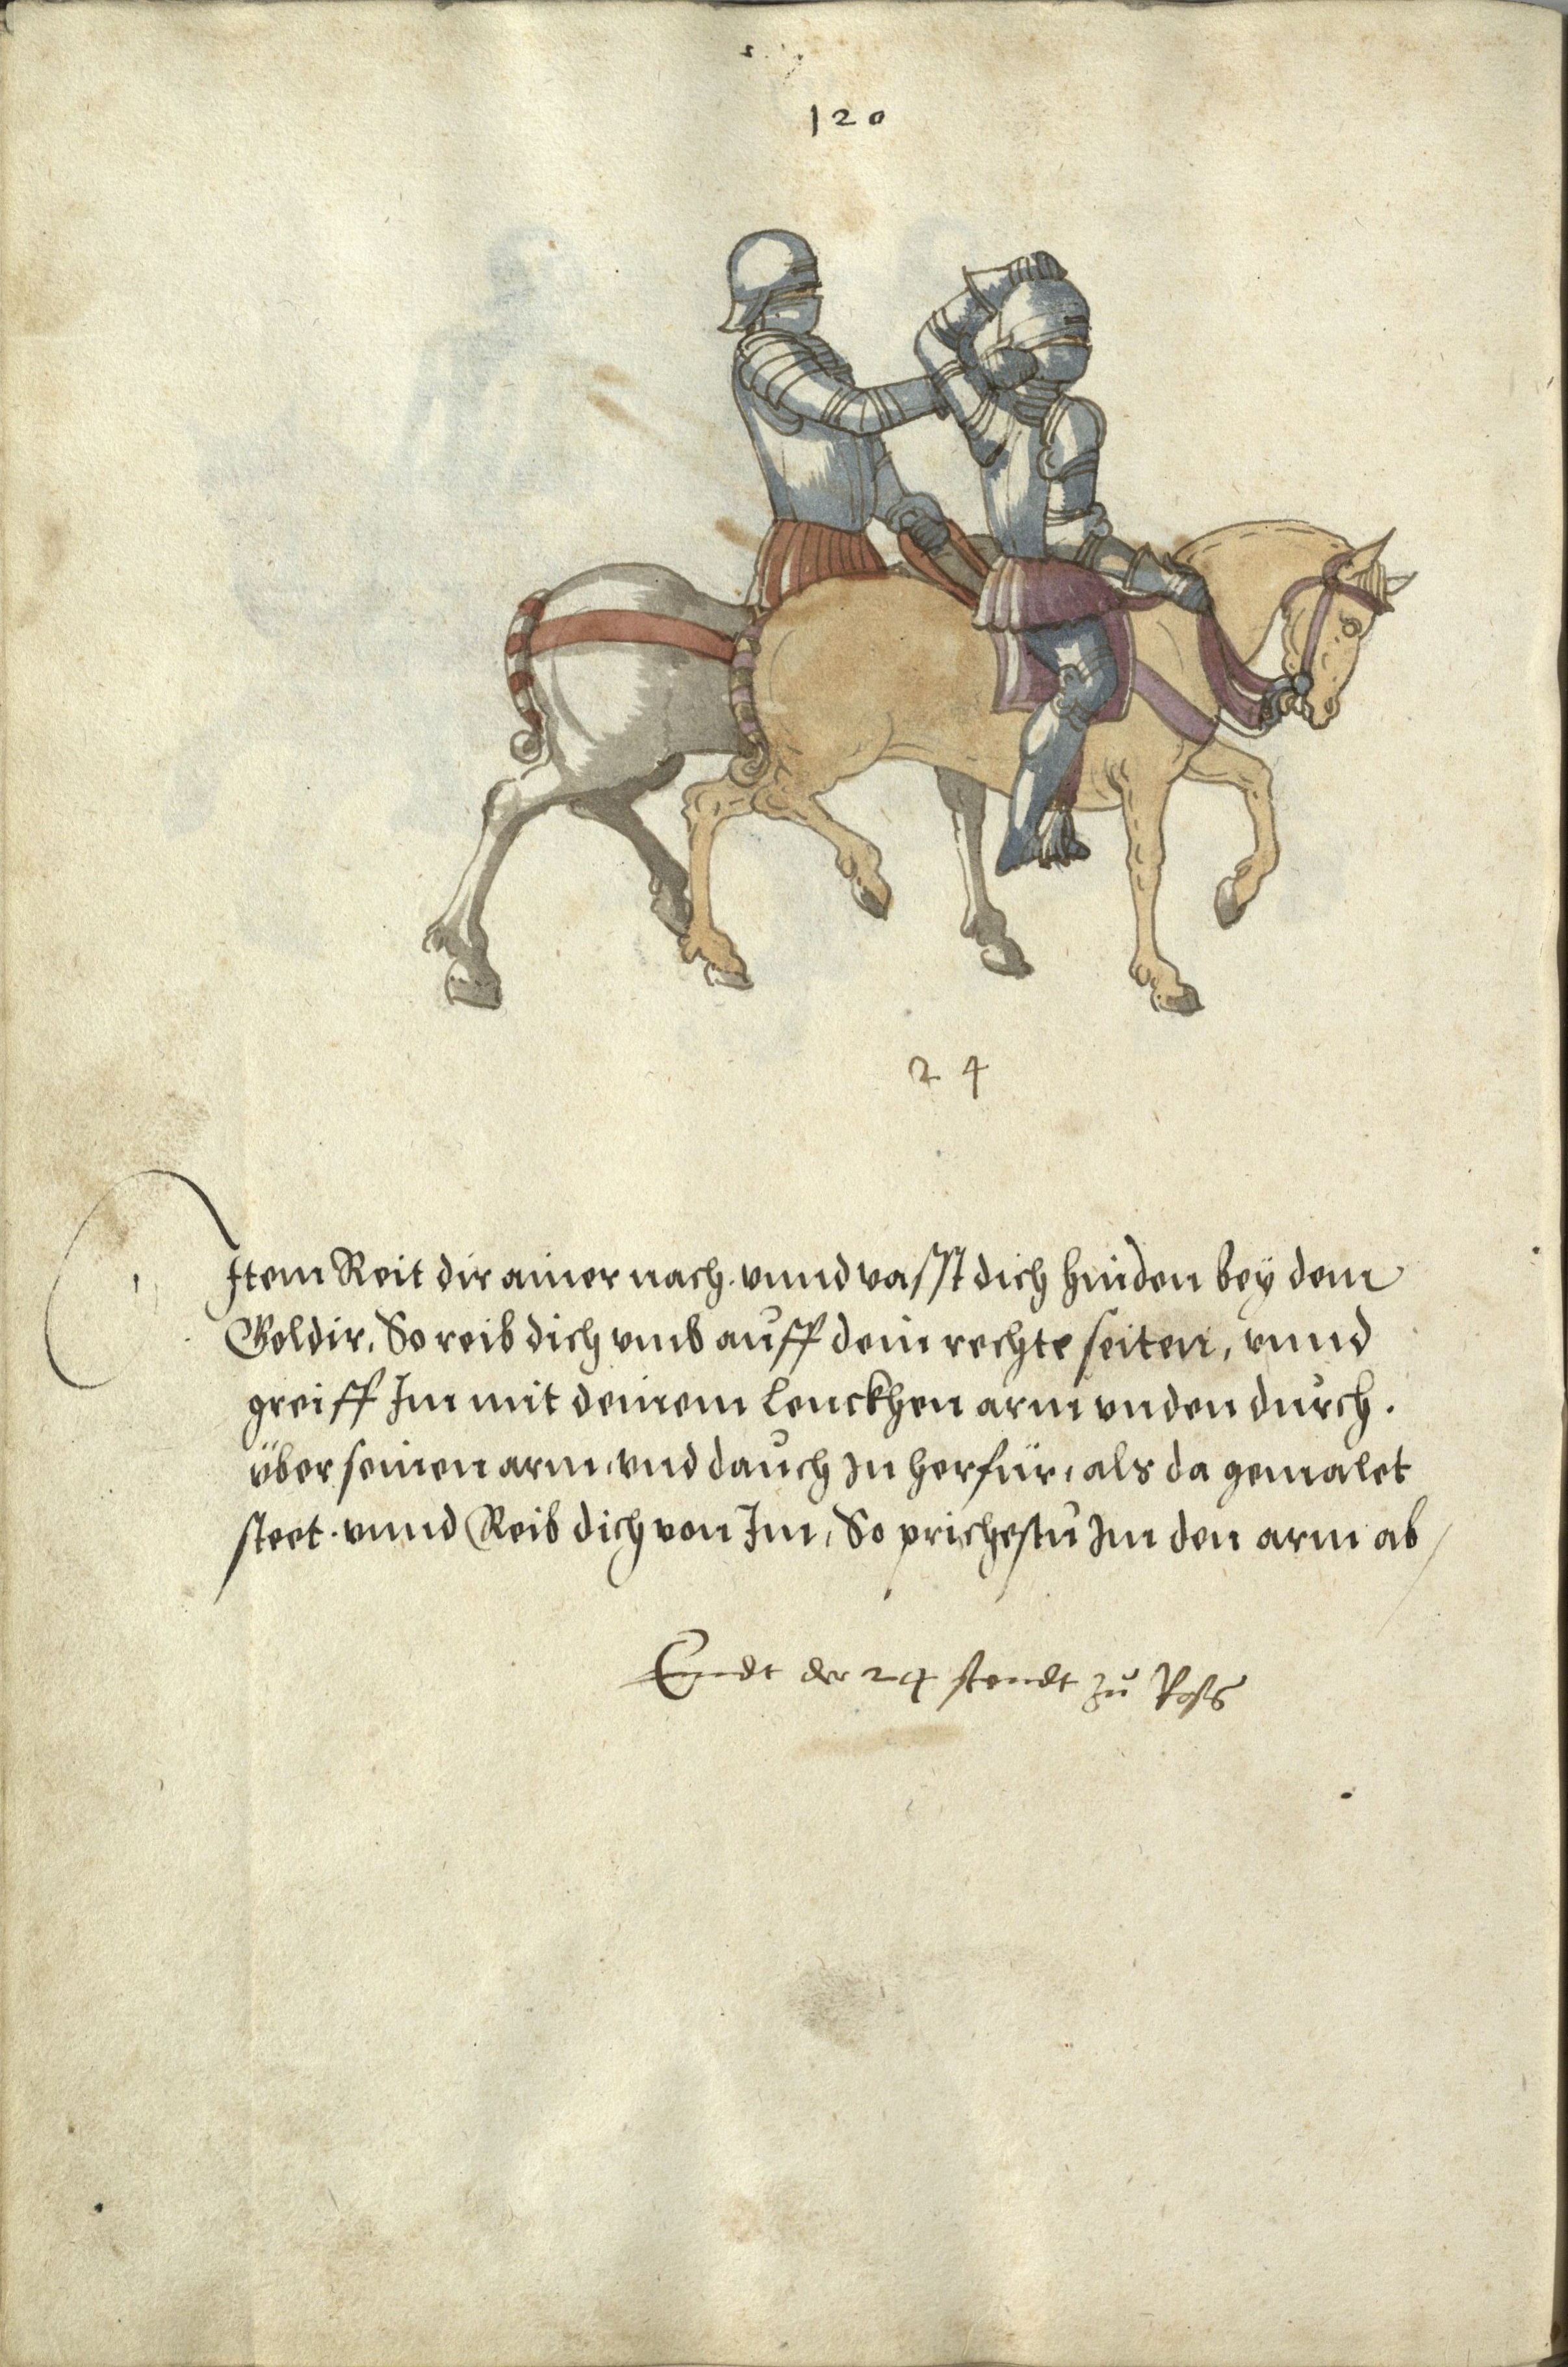 120
24
Item Reit dir ainer nach. vnnd vasst dich hinden bey dem
Goldir, So reib dich vmb auff dein rechte seiten, vnnd
greiff Im mit deinem lenckhen arm vnden durch.
über seinen arm, vnd dauch In herfür, als da gemalet
steet. vnnd Reib dich von Im, So prichestu Im den arm ab
Endt der 24 stendt zu Ross